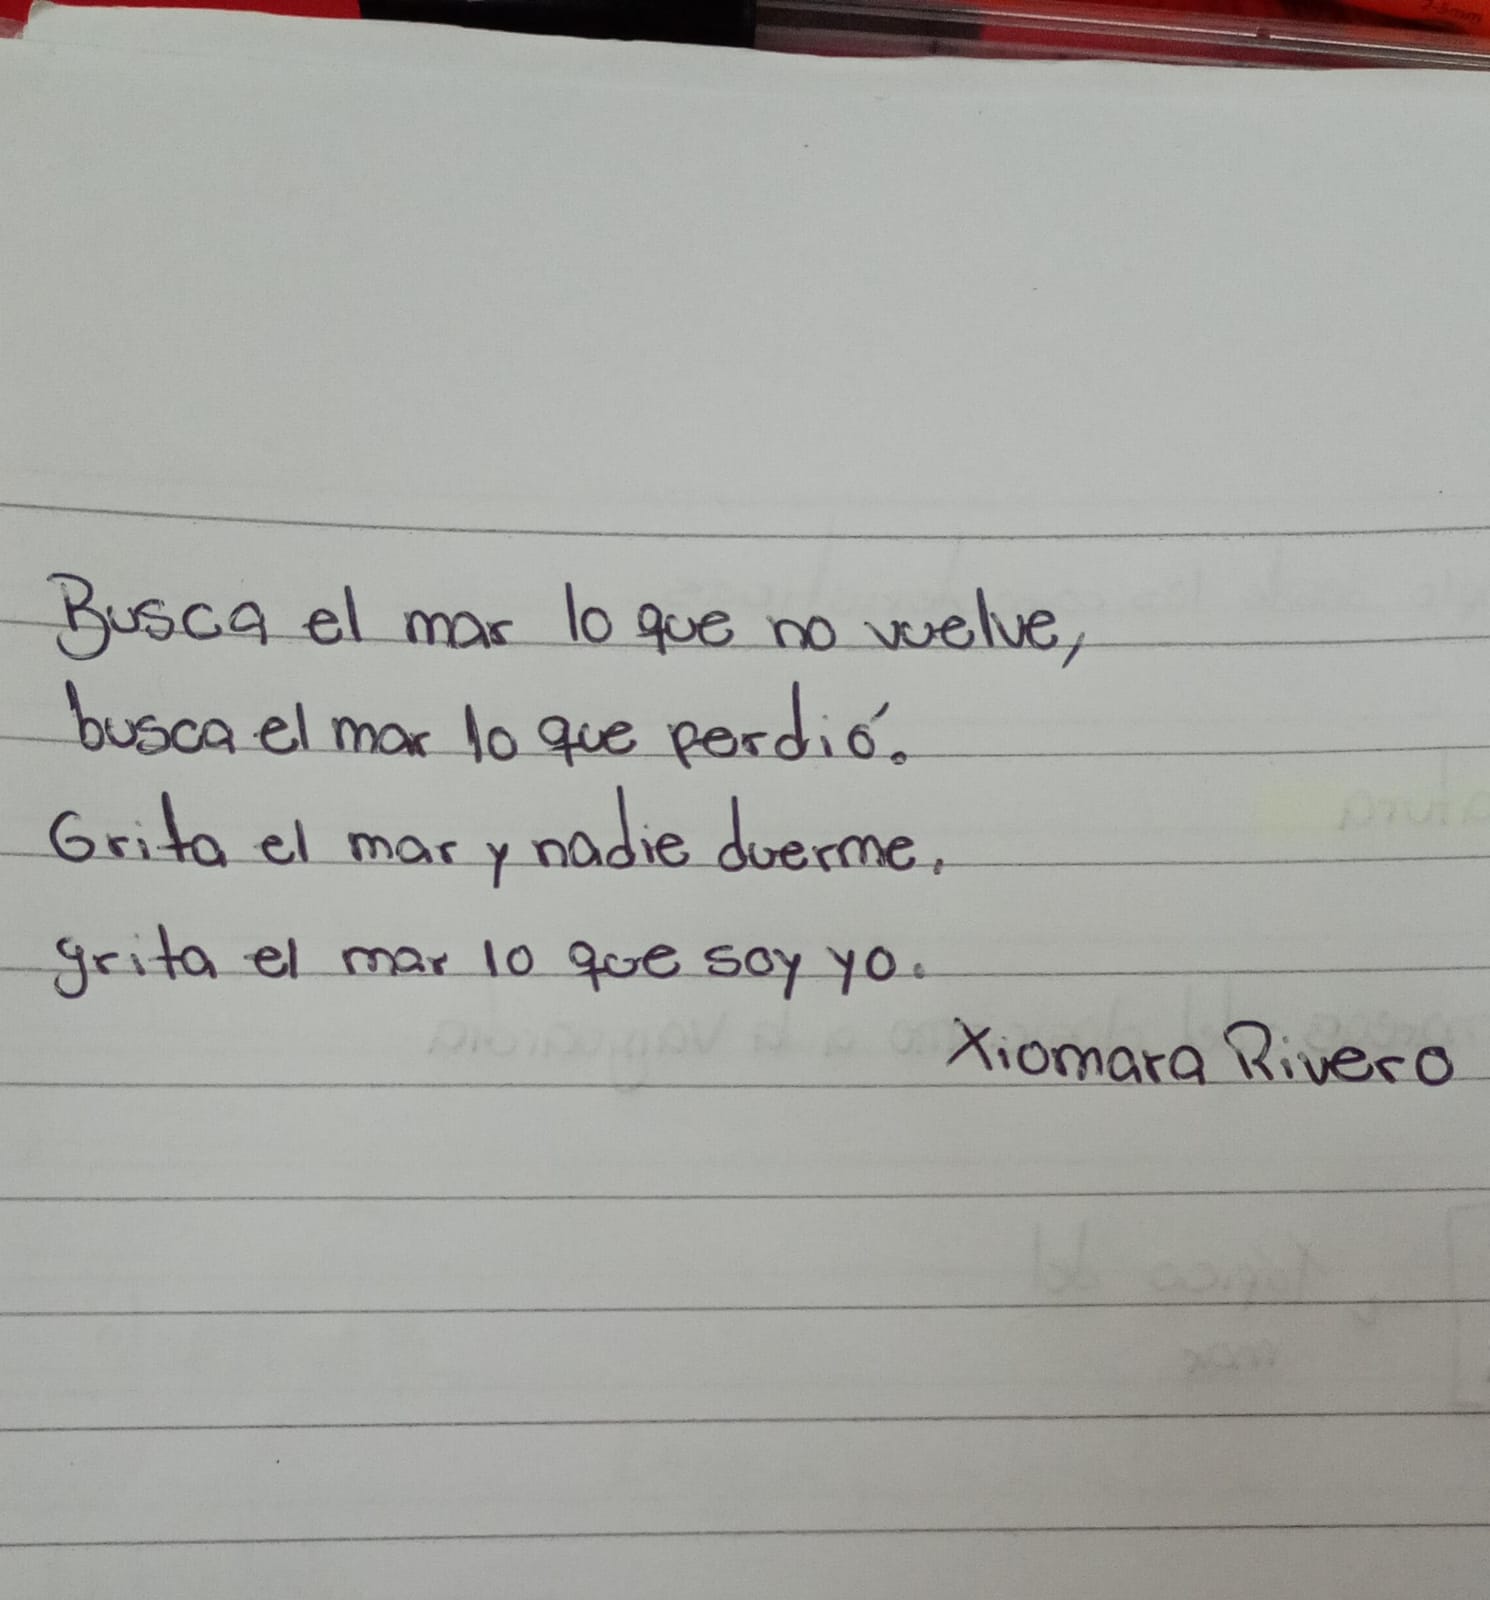 Busca el mar lo que no vuelve,
busca el mar lo que perdió.
Grita el mar y nadie duerme,
grita el mar lo que soy yo.
Xiomara Rivero